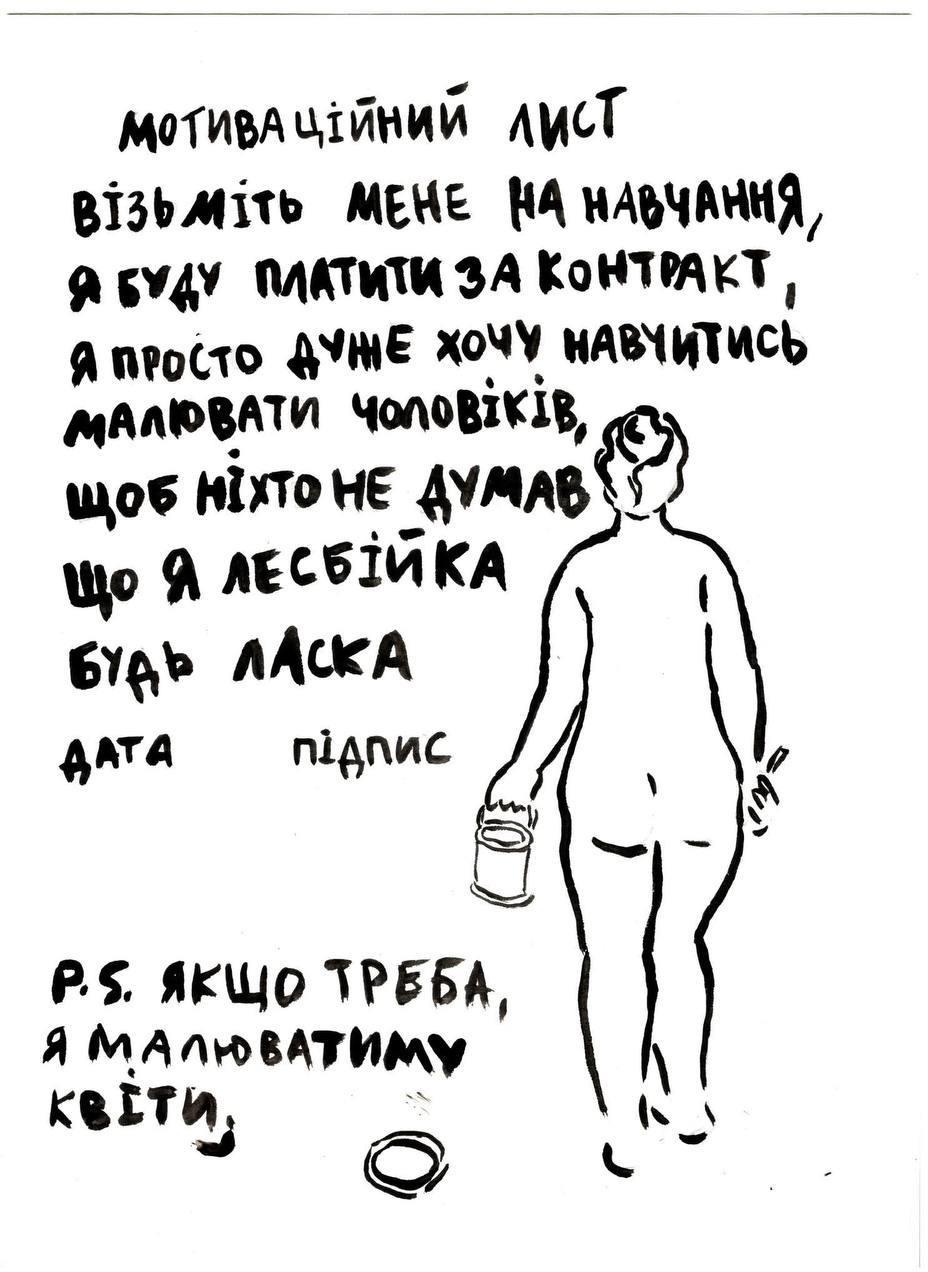 МОТИВАЦІЙНИЙ ЛИСТ
ВІЗЬМІТЬ МЕНЕ НА НАВЧАННЯ,
Я БУДУ ПЛАТИТИ ЗА КОНТРАКТ,
Я ПРОСТО ДУЖЕ ХОЧУ НАВЧИТИСЬ
МАЛЮВАТИ ЧОЛОВІКІВ,
ЩОБ НІХТО НЕ ДУМАВ
ЩО Я ЛЕСБІЙКА
БУДЬ ЛАСКА
ДАТА ПІДПИС
P.S. ЯКЩО ТРЕБА,
Я МАЛЮВАТИМУ
КВІТИ.